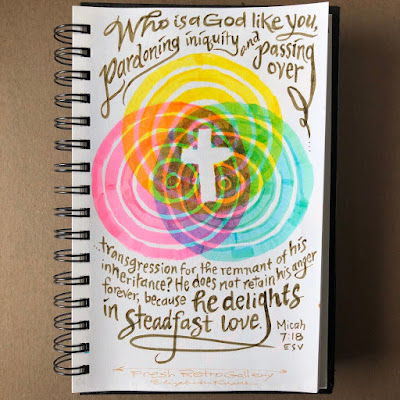 Who is a God like you,
Pardoning iniquity and Passing
over
transgression for the remnant of his
inheritance? He does not retain his anger
forever, because he delights
in steadfast love.
Micah
7:18
ESV
Fresh Retro Gallery